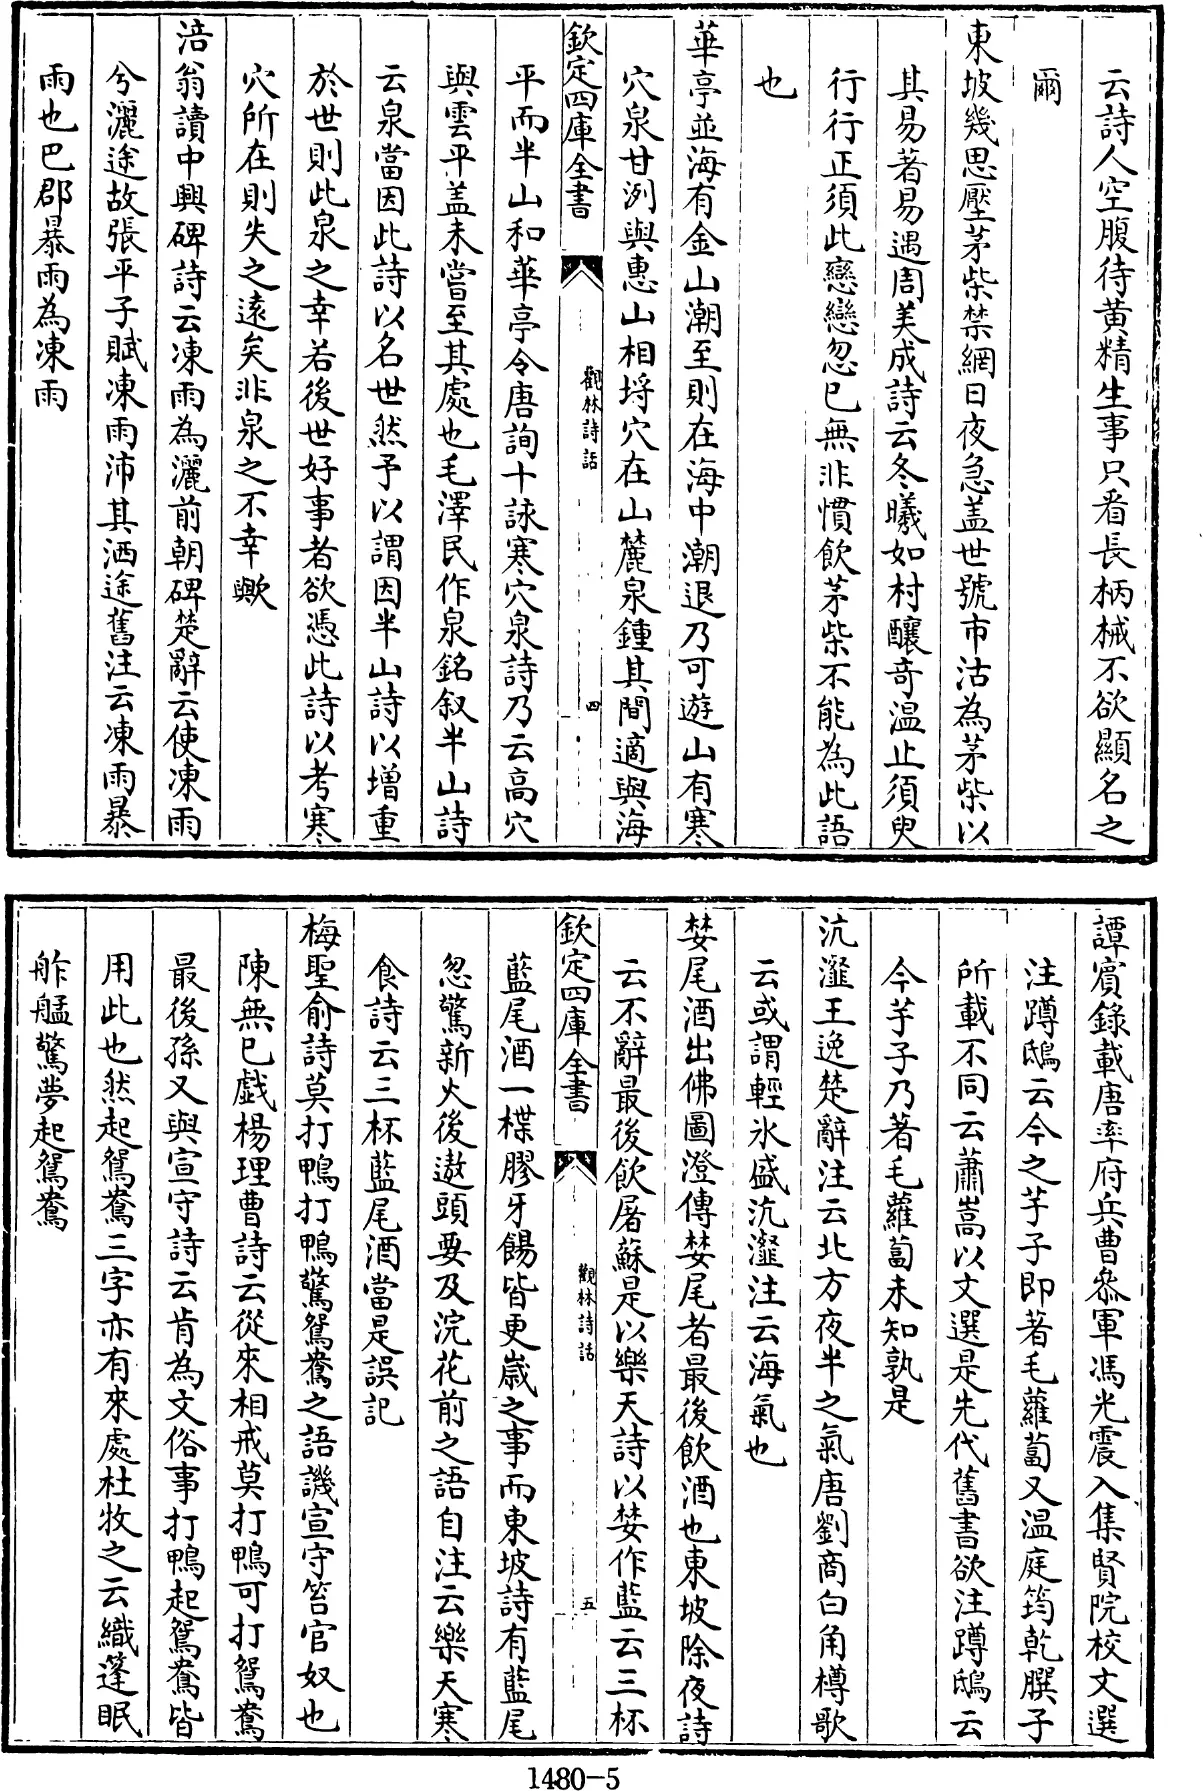 云詩人空腹待黄精生事只看長柄械不欲顯名之
爾
東坡幾思壓茅柴禁網日夜急盖世號市沽為茅柴以
其易著易過周美成詩云冬曦如村釀竒温止須臾
行行正須此戀戀忽已無非慣飲茅柴不能為此語
也
華亭並海有金山潮至則在海中潮退乃可遊山有寒
穴泉甘洌與惠山相埒穴在山麓泉鍾其間適與海
欽定四庫全書
觀林詩話
四
平而半山和華亭令唐詢十詠寒穴泉詩乃云高穴
與雲平盖未嘗至其處也毛澤民作泉銘叙半山詩
云泉當因此詩以名世然予以謂因半山詩以増重
於世則此泉之幸若後世好事者欲憑此詩以考寒
穴所在則失之逺矣非泉之不幸歟
涪翁讀中興碑詩云凍雨為灑前朝碑楚辭云使凍雨
兮灑途故張平子賦凍雨沛其洒途舊注云凍雨暴
雨也巴郡暴雨為凍雨
譚賔録載唐率府兵曹叅軍馮光震入集賢院校文選
注蹲鴟云今之芋子即著毛蘿蔔又温庭筠乾䐪子
所載不同云蕭嵩以文選是先代舊書欲注蹲鴟云
今芋子乃著毛蘿蔔未知孰是
沆瀣王逸楚辭注云北方夜半之氣唐劉商白角樽歌
云或謂輕氷盛沆瀣注云海氣也
婪尾酒出佛圖澄傳婪尾者最後飲酒也東坡除夜詩
云不辭最後飲屠蘇是以樂天詩以婪作藍云三杯
欽定四庫全書
觀林詩話
五
藍尾酒一楪膠牙餳皆更嵗之事而東坡詩有藍尾
忽驚新火後遨頭要及浣花前之語自注云樂天寒
食詩云三杯藍尾酒當是誤記
梅聖俞詩莫打鴨打鴨驚鴛鴦之語譏宣守笞官奴也
陳無已戯楊理曹詩云從來相戒莫打鴨可打鴛鴦
最後孫又與宣守詩云肯為文俗事打鴨起鴛鴦皆
用此也然起鴛鴦三字亦有來處杜牧之云織蓬眠
舴艋驚夢起鴛鴦
1480-5